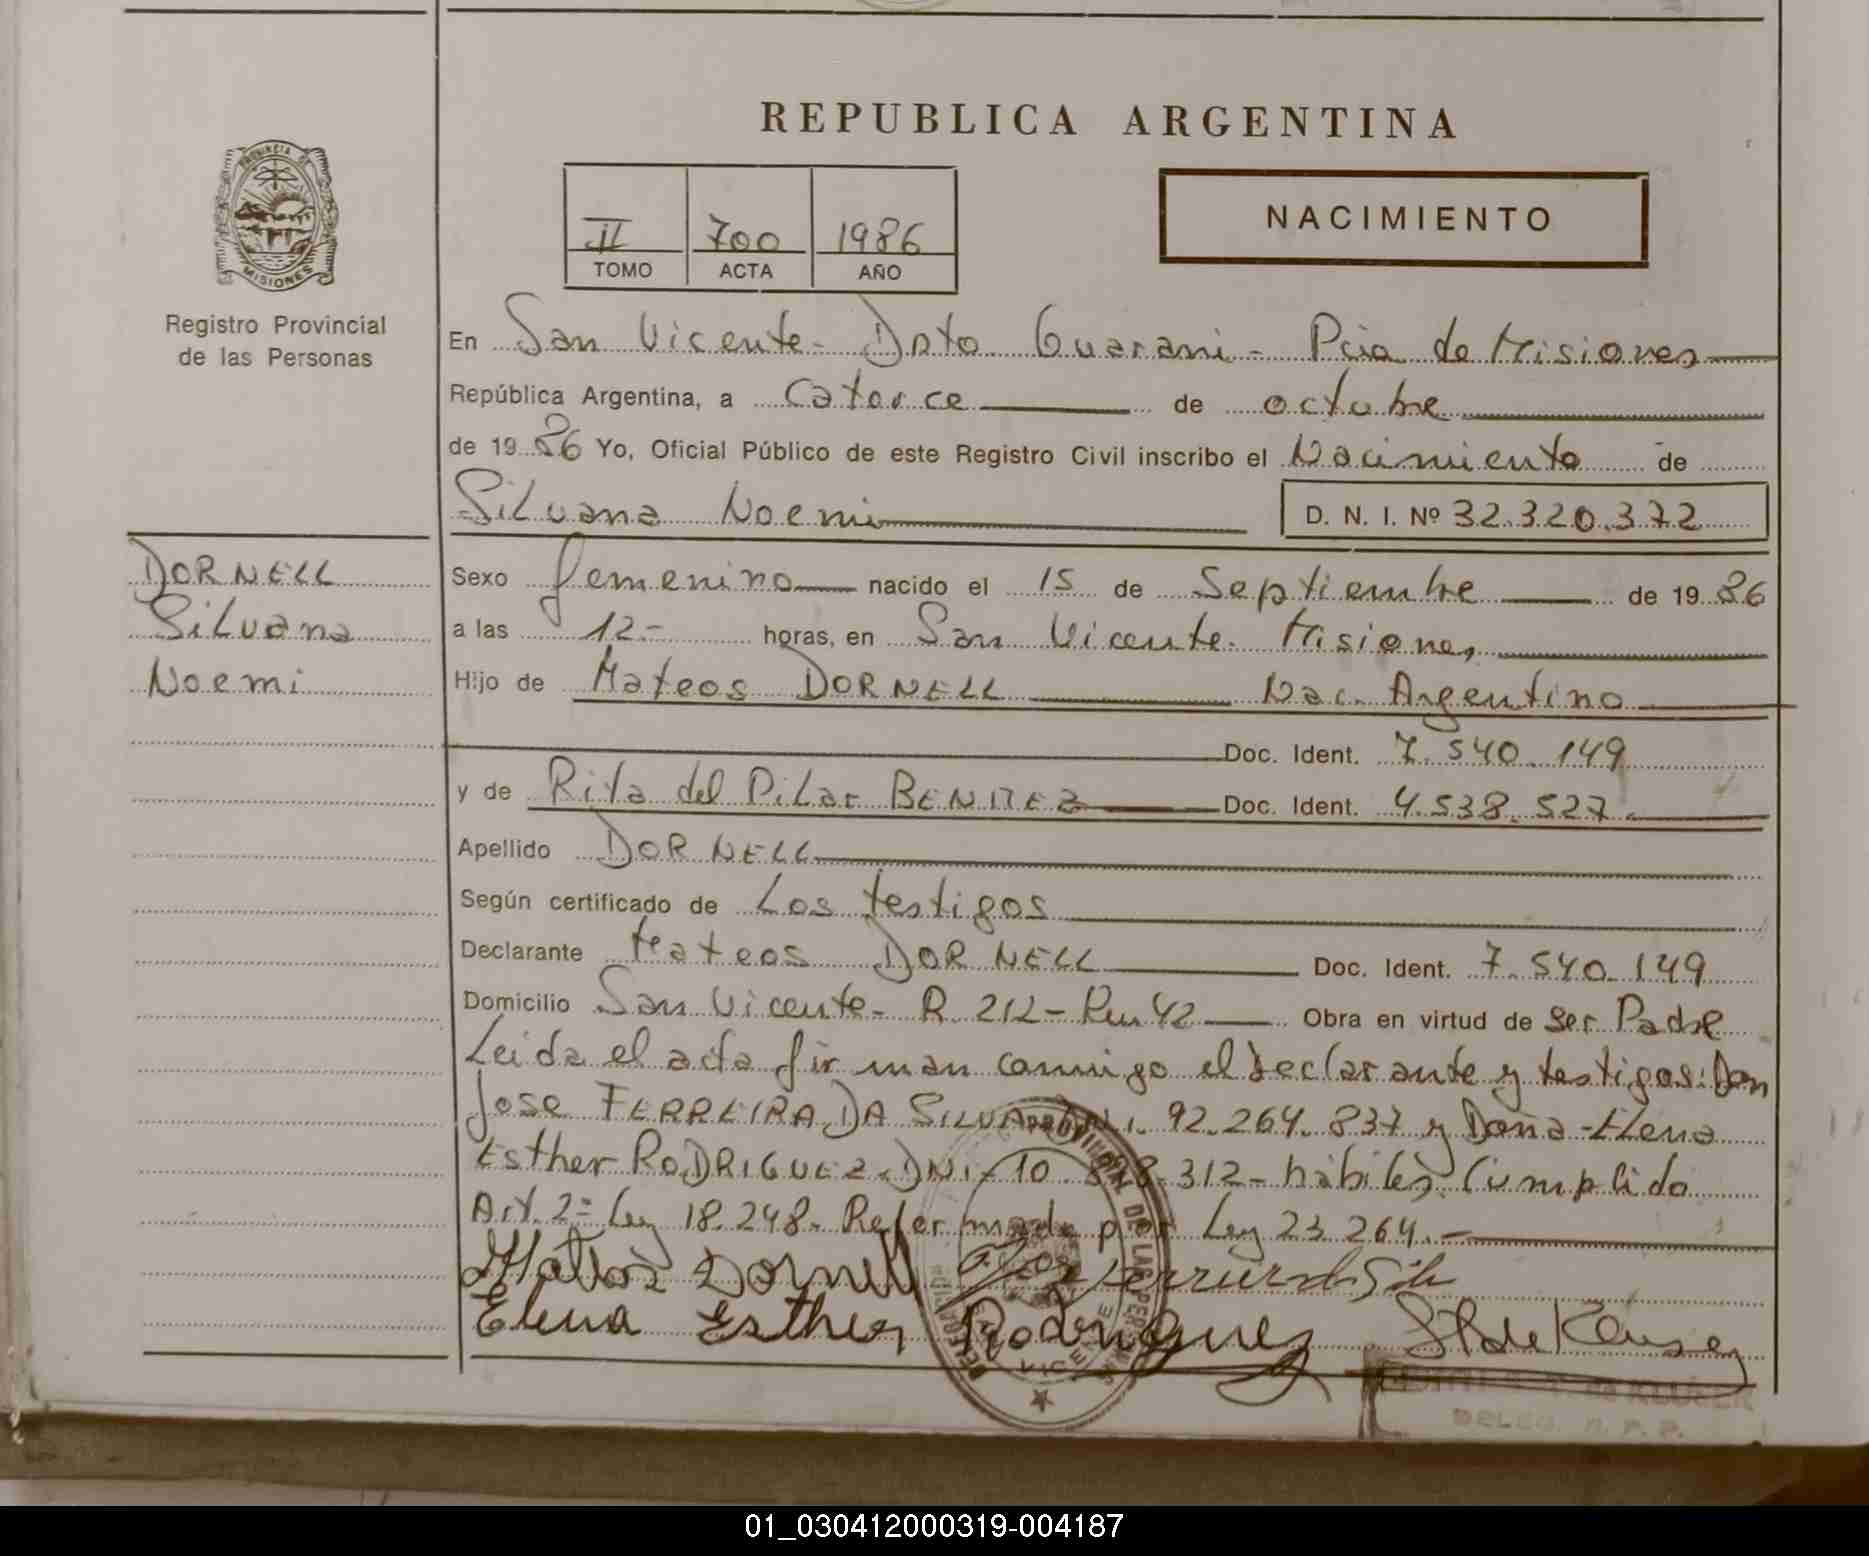 REPUBLICA ARGENTINA
PROVINCIA DE
MISIONES
Registro Provincial
de las Personas
II 700 1986
TOMO ACTA AÑO
NACIMIENTO
En San Vicente - Dpto Guarani - Pcia de Misiones
República Argentina, a catorce de octubre
de 1986 Yo, Oficial Público de este Registro Civil inscribo el Nacimiento de
Silvana Noemi D. N. I. Nº 32.320.372
DORNELL
Silvana
Noemi
Sexo femenino nacido el 15 de Septiembre de 1986
a las 12- horas, en San Vicente. Misiones
Hijo de Mateos DORNELL Nac. Argentino
Doc. Ident. 7.540.149
y de Rita del Pilar BENITEZ Doc. Ident. 4.538.527.
Apellido DORNELL
Según certificado de Los testigos
Declarante Mateos DORNELL Doc. Ident. 7.540.149
Domicilio San Vicente - R. 212 - Km 42 Obra en virtud de Ser Padre
Leida el acta firman conmigo el declarante y testigos: Don
Jose FERREIRA DA SILVA DNI. 92.264.837 y Doña Elena
Esther RODRIGUEZ DNI - 10. 312 - hábiles. Cumplido
Art. 2= Ley 18.248. Reformada por Ley 23264.-
Mateos Dornell
Elena Esther Rodriguez
PROVINCIAL DE LAS PER
VICENTE
DELEG. R. P. P.
01_030412000319-004187